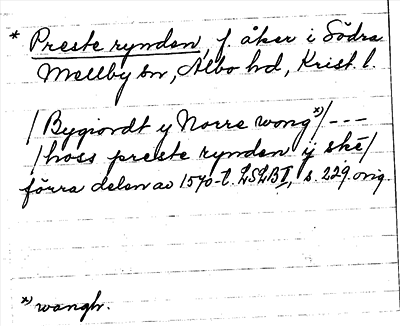 * Preste rynden, f. åker i Södra
Mellby sn, Albo hd, Krist. l.
/Bygiordt y Norre wong*)/ ---
/hoss preste rynden ÿ skē/
förra delen av 1570-t. LSLBII, s. 229. orig.
*) wangh.